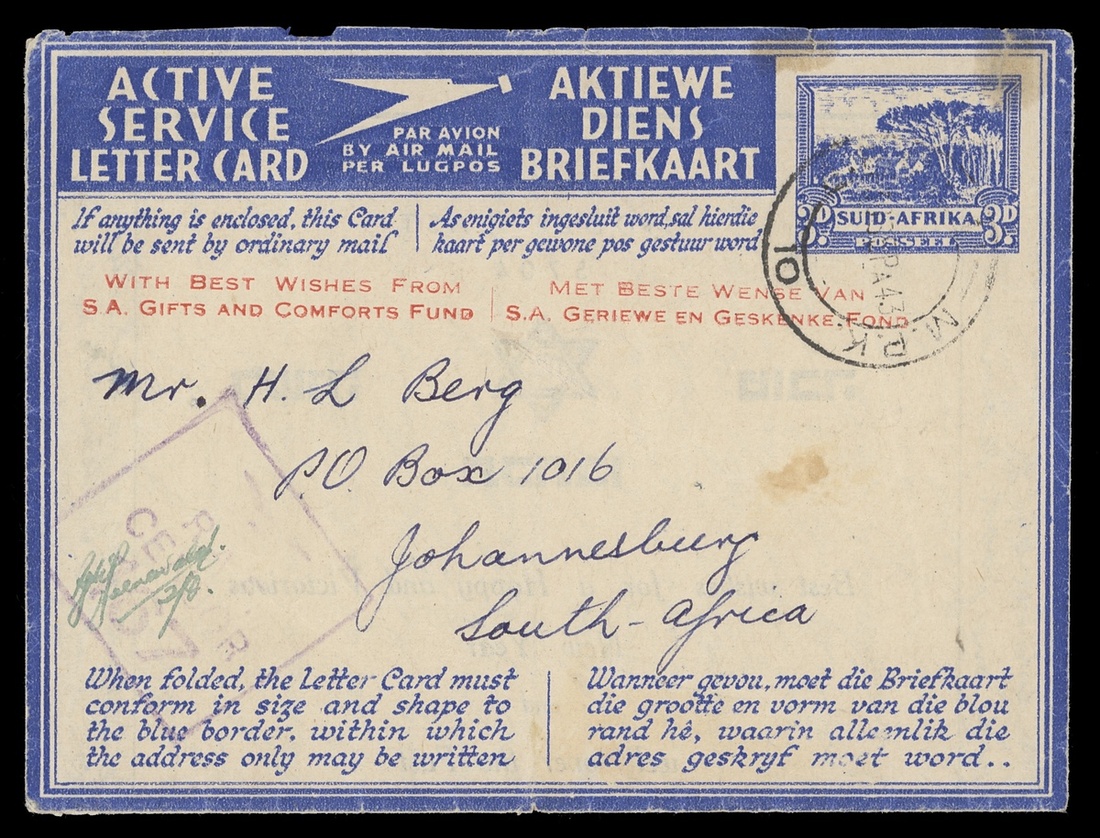 ACTIVE
SERVICE
LETTER CARD
PAR AVION
BY AIR MAIL
PER LUGPOS
AKTIEWE
DIENS
BRIEFKAART
3D SUID-AFRIKA 3D
POSSEËL
If anything is enclosed, this Card
will be sent by ordinary mail
As enigiets ingesluit word, sal hierdie
kaart per gewone pos gestuur word
WITH BEST WISHES FROM
S.A. GIFTS AND COMFORTS FUND
MET BESTE WENSE VAN
S.A. GERIEWE EN GESKENKE FOND
10
M.P.K.
Mr. H. L Berg
P.O. Box 1016
Johannesburg
South-Africa
When folded, the Letter Card must
conform in size and shape to
the blue border, within which
the address only may be written
Wanneer gevou, moet die Briefkaart
die grootte en vorm van die blou
rand hê, waarin alleenlik die
adres geskryf moet word..